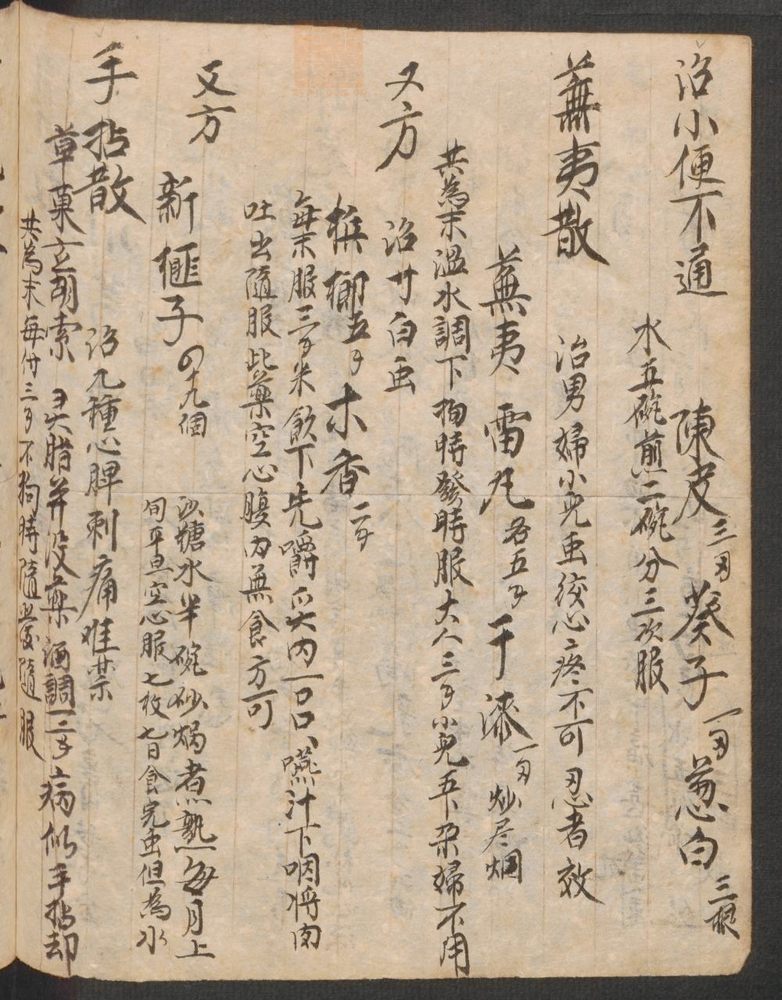 治小便不通
陳皮三两葵子一两葱白三根
水五碗煎二碗分三次服
蕪夷散
治男婦小児虫咬心疼不可忍者效
蕪夷 雷丸各五錢干漆一两炒尽烟
共為末温水調下拘時發時服大人三錢小児五分孕婦不用
又方
治寸白虫
梹榔五錢木香二錢
每末服三錢米飲下先嚼炙肉一口口嚥汁下咽将肉
吐出隨服此藥空心腹内無食方可
又方
新榧子四十九個
沙糖水半碗砂鍋煮熟每月上
旬平旦空心服七枚七日食完虫但為水
手拈散
治九種心脾刺痛难禁
草菓玄胡索 灵脂并没藥酒調一二錢病似手拈却
共為末每付三錢不拘時隨發隨服